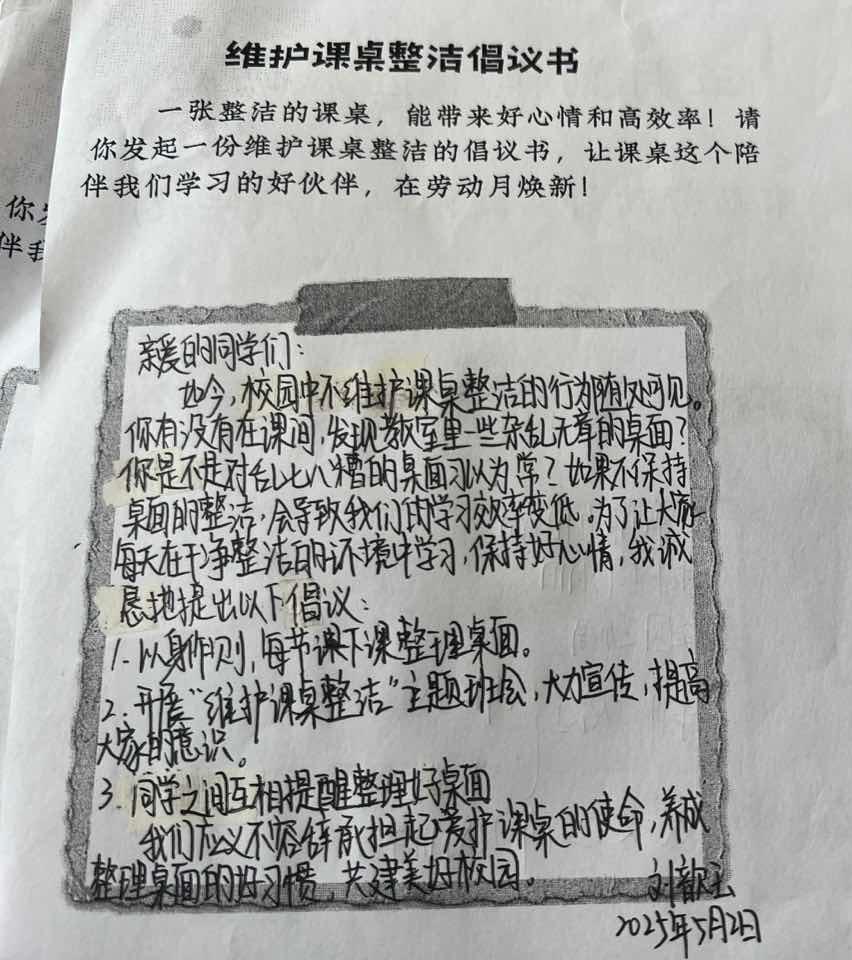 维护课桌整洁倡议书
一张整洁的课桌，能带来好心情和高效率！请
你发起一份维护课桌整洁的倡议书，让课桌这个陪
伴我们学习的好伙伴，在劳动月焕新！
你发
伴我
亲爱的同学们：
如今，校园中不维护课桌整洁的行为随处可见。
你有没有在课间，发现教室里一些杂乱无章的桌面？
你是不是对乱七八糟的桌面习以为常？如果不保持
桌面的整洁，会导致我们的学习效率变低。为了让大家
每天在干净整洁的环境中学习，保持好心情，我诚
恳地提出以下倡议：
1.以身作则，每节课下课整理桌面。
2.开展“维护课桌整洁”主题班会，大力宣传，提高
大家的意识。
3.同学之间互相提醒整理好桌面
我们应义不容辞承担起爱护课桌的使命，养成
整理桌面的好习惯，共建美好校园。
刘歆玉
2025年5月2日